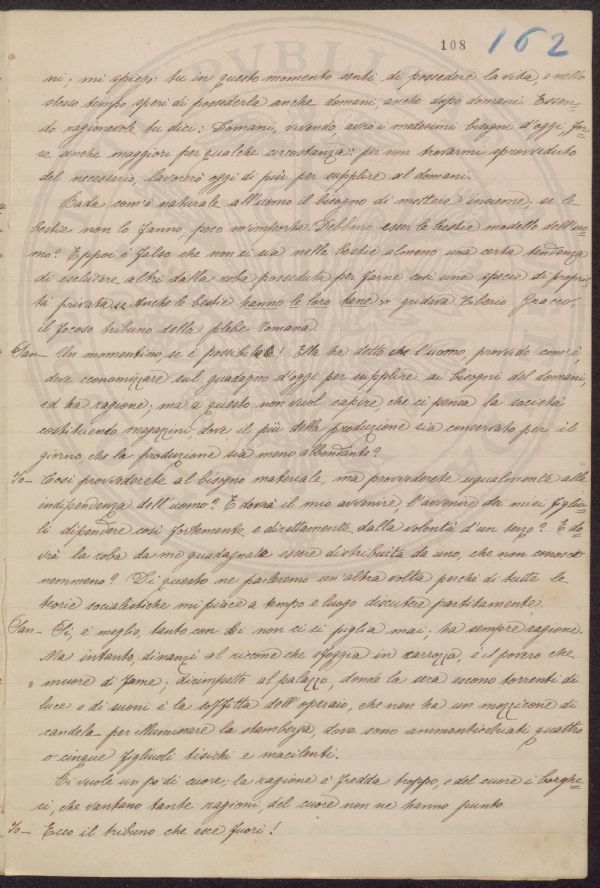 108 162
ni; mi spiego: tu in questo momento senti di possedere la vita, e nello
stesso tempo speri di possederla anche domani, anche dopo domani. Essen-
do ragionevole tu dici: Domani, vivendo, avrò i medesimi bisogni d'oggi, for-
se anche maggiori per qualche circostanza: per non trovarmi sprovveduto
del necessario, lavorerò oggi di più per supplire al domani.
Bada com'è naturale all'uomo il bisogno di mettere insieme; se le
bestie non lo fanno, poco m'importa. Debbono esser le bestie modello dell'uo-
mo? Eppoi è falso che non ci sia nelle bestie almeno una certa tendenza
di escludere altri dalla roba posseduta per farne così una specie di proprie-
tà privata. « Anche le bestie hanno le loro tane » gridava Tiberio Gracco,
il focoso tribuno della plebe romana.
San— Un momentino, se è possibile! Ella ha detto che l'uomo, provvido com'è,
deve economizzare sul guadagno d'oggi per supplire ai bisogni del domani,
ed ha ragione; ma a questo non vuol capire che ci pensa la società
costituendo magazzini, dove il più della produzione sia conservato per il
giorno, che la produzione sia meno abbondante?
Io— Così provvederete al bisogno materiale, ma provvederete ugualmente alla
indipendenza dell'uomo? E dovrà il mio avvenire, l'avvenire dei miei figlio-
li dipendere così fortemente e direttamente dalla volontà d'un terzo? E do-
vrà la roba da me guadagnata essere distribuita da uno, che non conosco
nemmeno? Di questo ne parleremo un'altra volta perchè di tutte le
teorie socialistiche mi piace a tempo e luogo discutere partitamente.
San— Sì, è meglio, tanto con lei non ci si piglia mai; ha sempre ragione.
Ma intanto, dinanzi al riccone che sfoggia in carrozza, è il povero che
muore di fame; dirimpetto al palazzo, donde la sera escono torrenti di
luce e di suoni è la soffitta dell'operaio, che non ha un mozzicone di
candela per illuminare la stamberga, dove sono ammonticchiati quattro
o cinque figliuoli tisichi e macilenti.
Ci vuole un po' di cuore; la ragione è fredda troppo, e del cuore i borghe-
si, che vantano tante ragioni, del cuore non ne hanno punto.
Io— Ecco il tribuno che esce fuori!